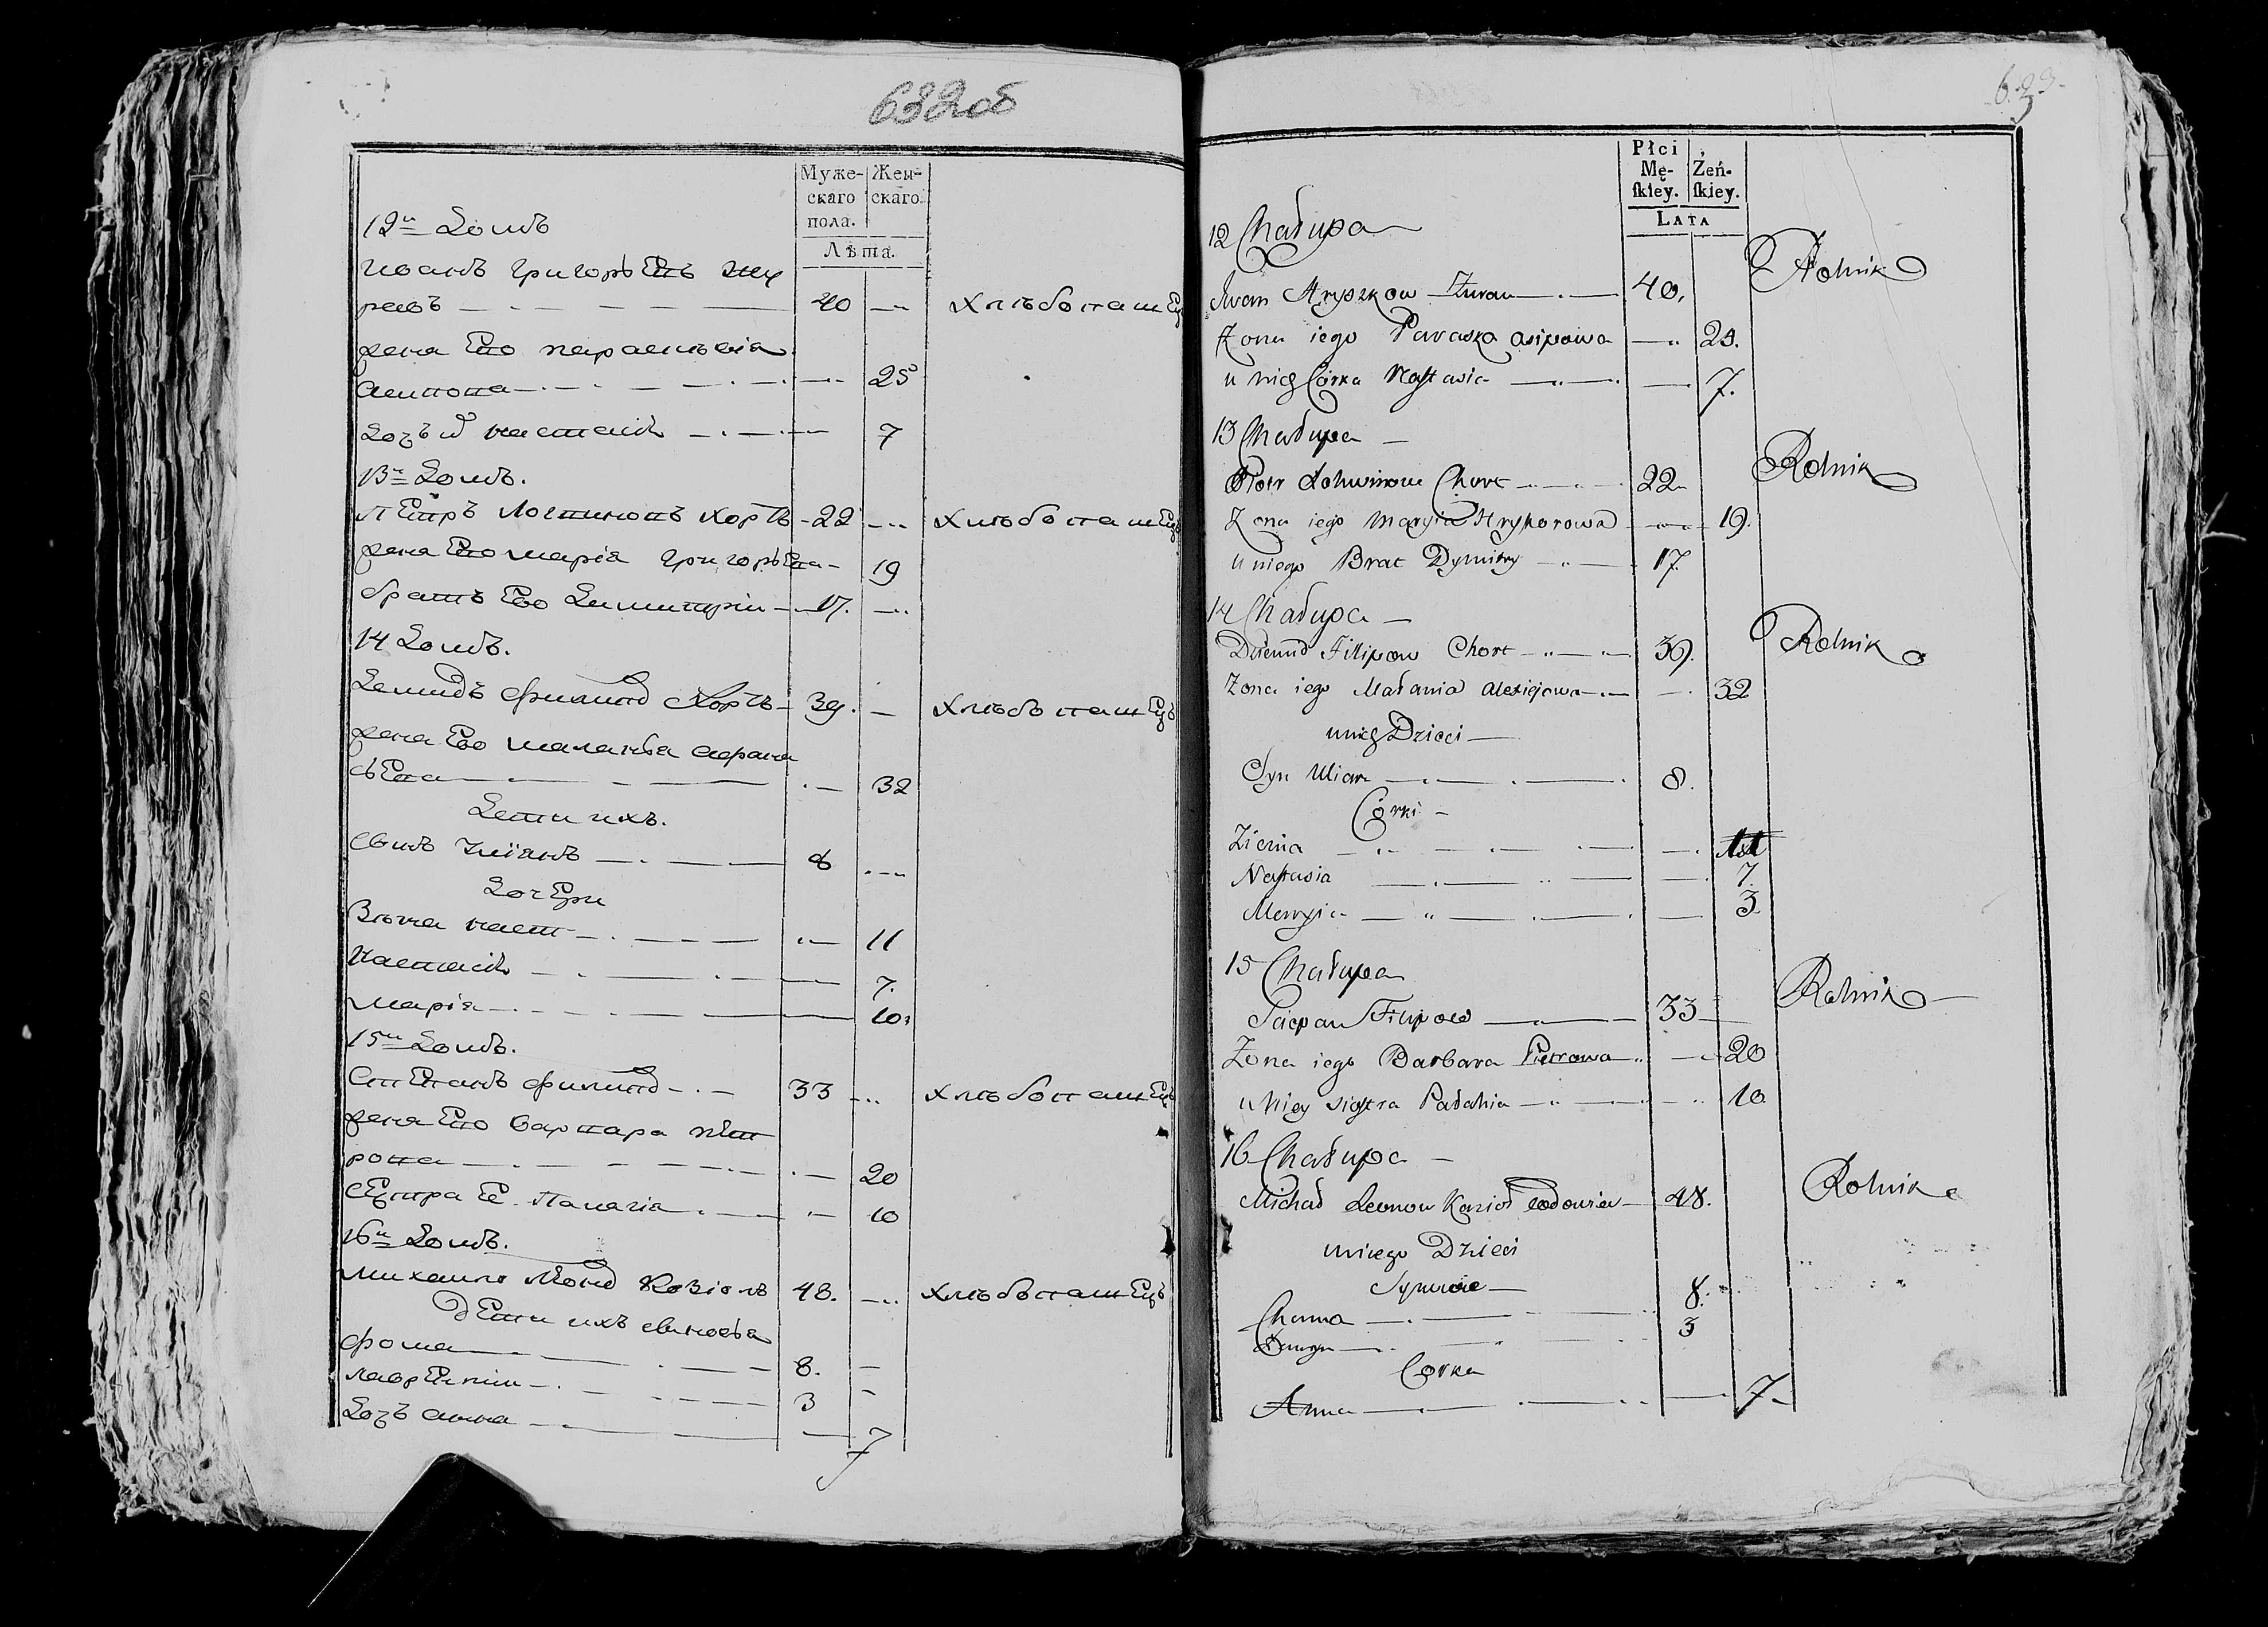 632об
Муже-
скаго
пола.
Жен-
скаго.
Лѣта.
12й Домъ
Иванъ Григорьевъ Жу
равъ 40 Хлѣбопашецъ
жена Его Парасковія
Асипова 25
дочь Настасія 7
13й Домъ.
Петръ Логвиновъ Хортъ 22 Хлѣбопашецъ
жена Его Марія Григорьева 19
братъ Его Димитрій 17.
14 Домъ.
Демидъ Филиповъ Хортъ 39. Хлѣбопашецъ
жена Его Маланья
32
Дети ихъ.
Сынъ Уліянъ 8
Дочери
11
Настасія 7.
Марія 10.
15й Домъ.
Степанъ Филиповъ 33 Хлѣбопашецъ
жена Его Варвара Пет
рова 20
Сестра Ее Палагія 10
16й Домъ.
Михайло Козіолъ 48. Хлѣбопашецъ
Дети ихъ сыновья
Фома 8.
Лаврентій 3
Дочь Анна 7
623.
Płci
Mę-
skiey.
Żeń-
skiey.
LATA
12 Chałupa
Iwan Hryszkow Żuraw 40. Rolnik
Żona iego Paraska Asipowa 25.
u nich Córka Nastazia 7.
13 Chałupa
Piotr Lohwinow Chort 22 Rolnik
Żona iego Maryia Hryhorowa 19.
u niego Brat Dymitry 17.
14 Chałupa
Dziemid Filipow Chort 39. Rolnik
Żona iego Małania Alexiejowa 32
u nich Dzieci
Syn Ulian 8.
Córki
Zienia 11
Nastazia 7.
Maryia 3.
15 Chałupa
Sciepan Filipow 33 Rolnik
Żona iego Barbara Pietrowa 20
u Niey siostra Pałahia 10
16 Chałupa
Michał Leonow Kozioł wdowiec 48. Rolnik
u niego Dzieci
Synowie
Choma 8.
3
Corka
Anna 7.